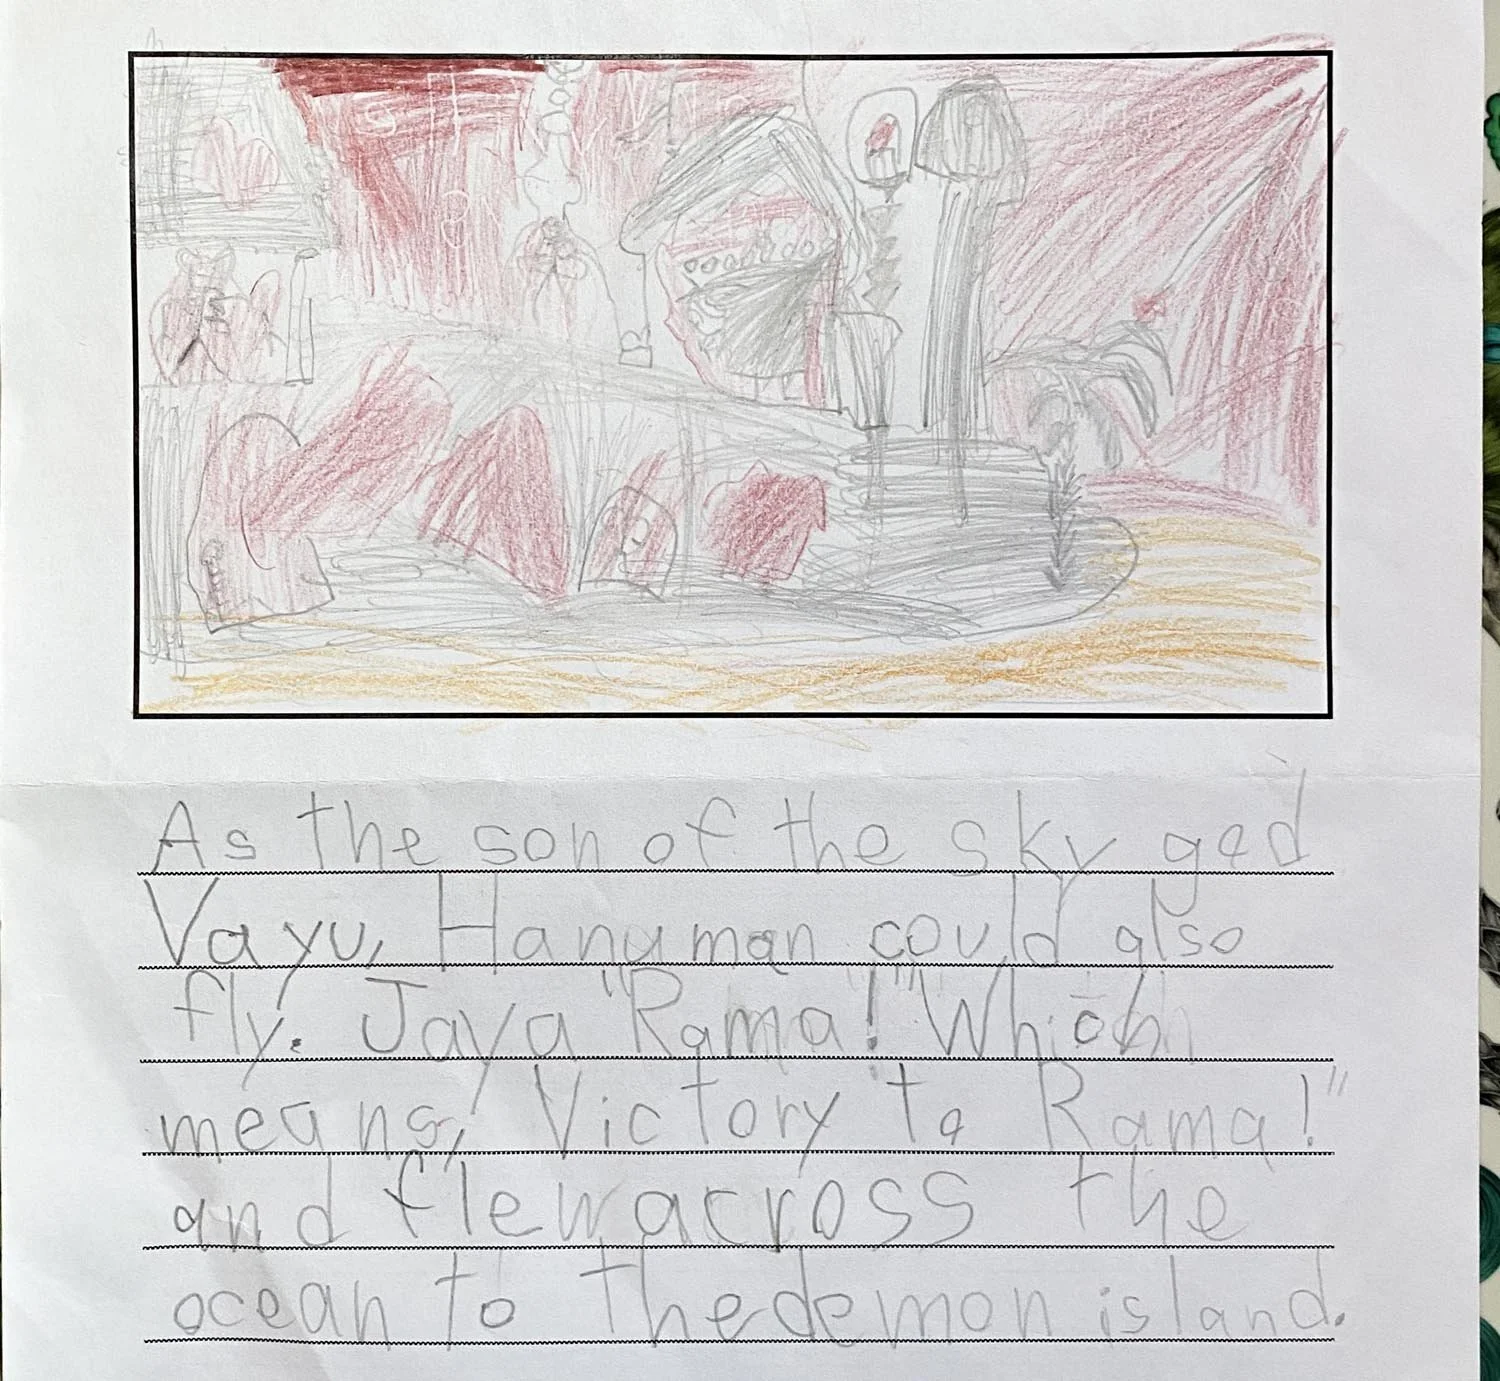 As the son of the sky god
Vayu, Hanuman could also
fly. Jaya "Rama!" Which
means, Victory to Rama!"
and flew across the
ocean to the demon island.